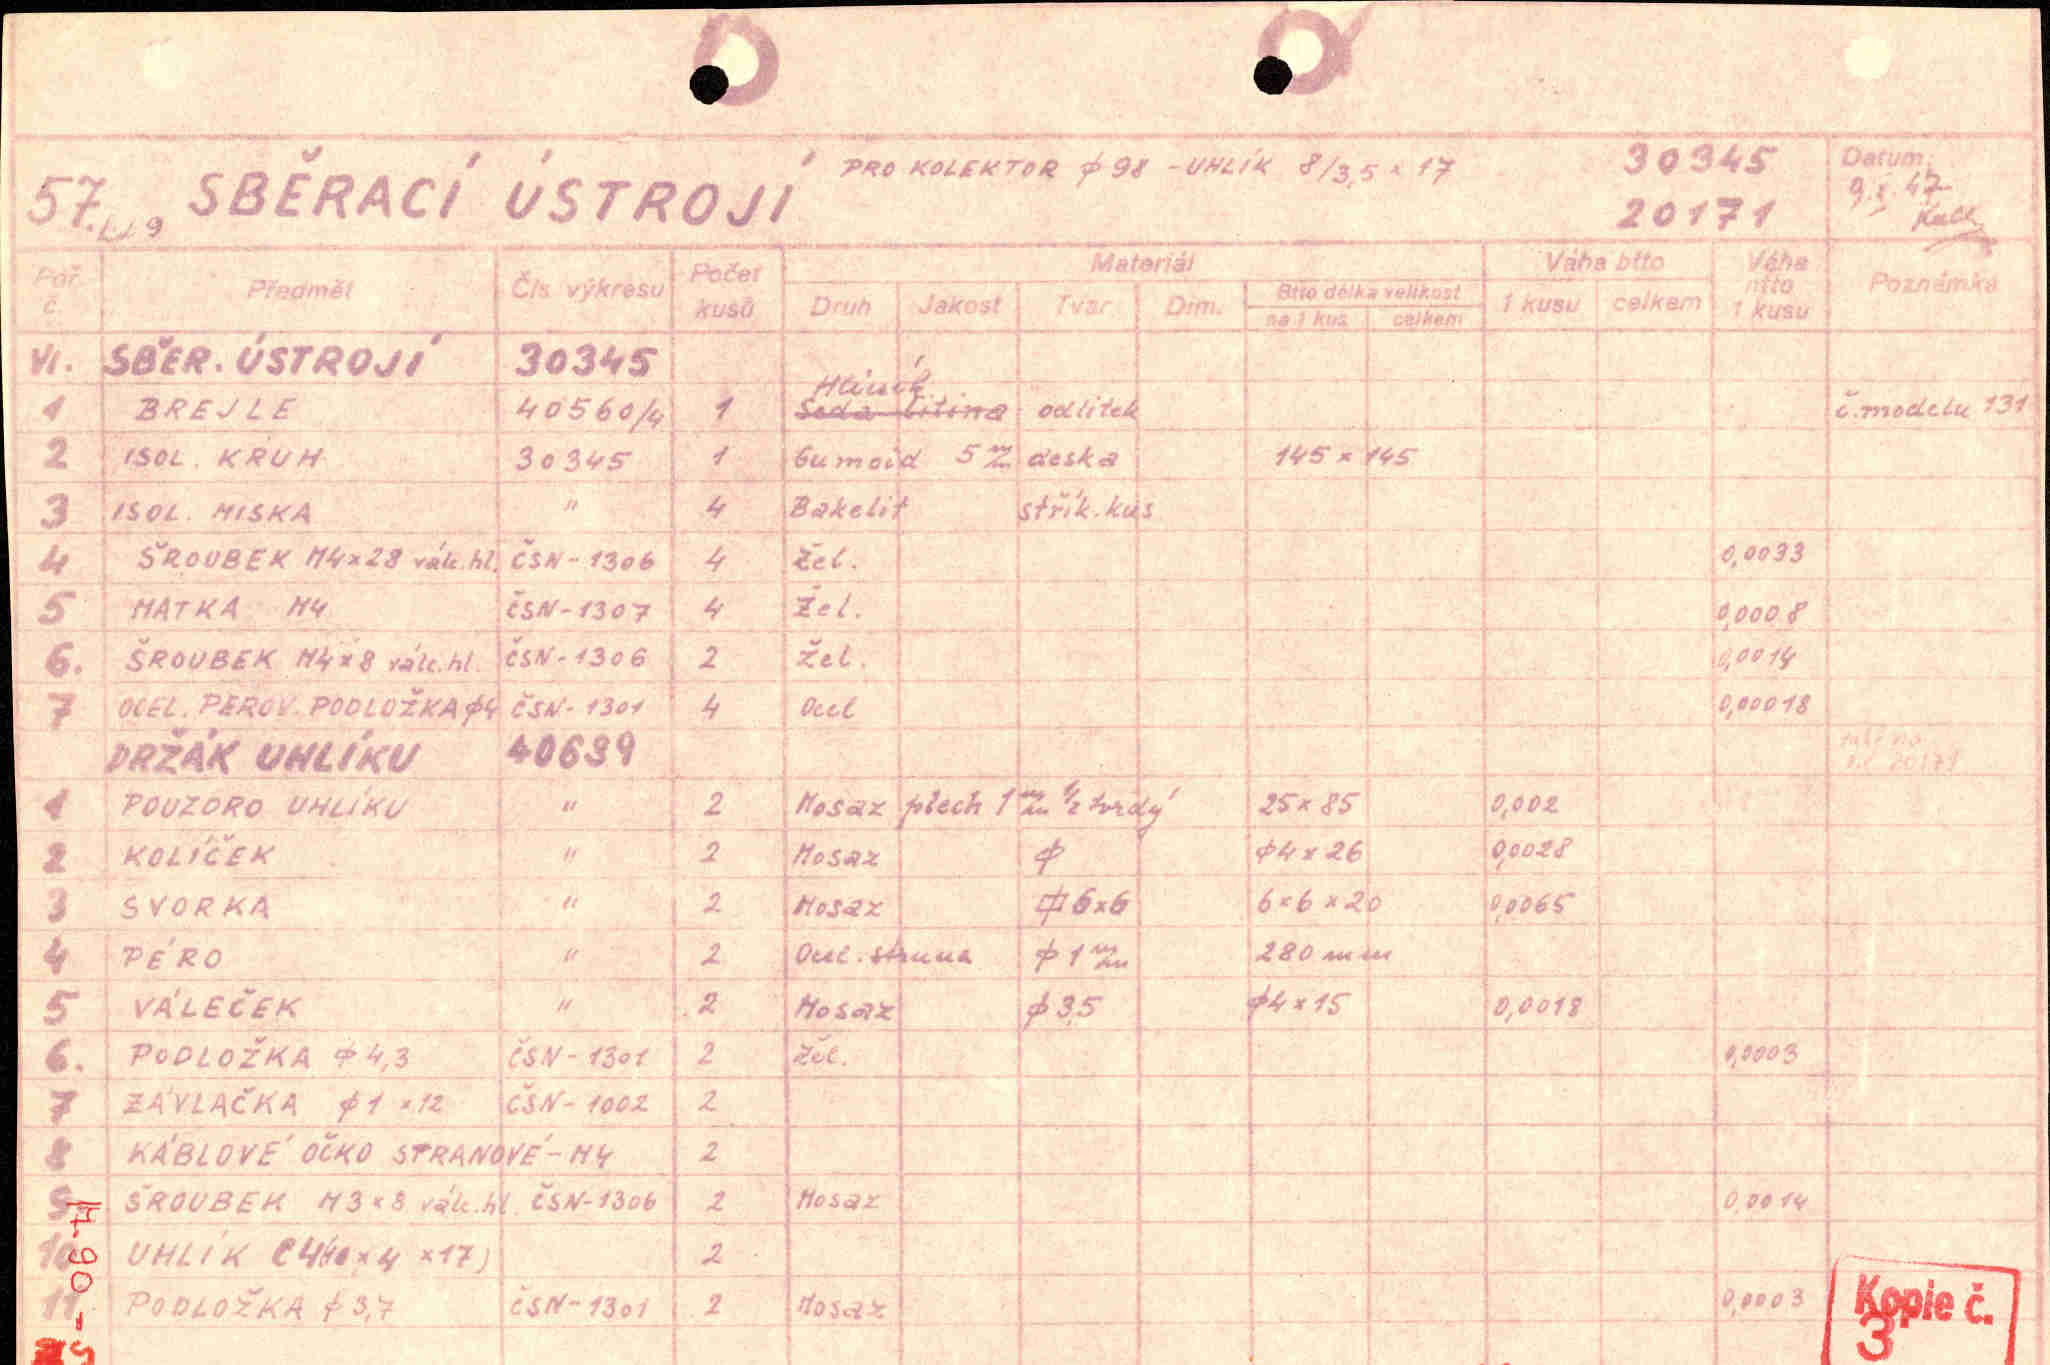 57. SBĚRACÍ ÚSTROJÍ PRO KOLEKTOR ϕ 98 - UHLÍK 8/3,5 x 17 30345 Datum:
20171 9.X.47
Poř. č. Předmět Čís. výkresu Počet kusů Materiál Váha btto Váha ntto 1 kusu Poznámka
Druh Jakost Tvar Dim. Btto délka velikost 1 kusu celkem
na 1 kus celkem
VI. SBĚR. ÚSTROJÍ 30345
Hliník
1 BREJLE 40560/4 1 Šedá litina odlitek č. modelu 131
2 ISOL. KRUH 30345 1 Gumoid 5 m/m deska 145 x 145
3 ISOL. MISKA " 4 Bakelit střík. kus
4 ŠROUBEK M4x28 válc. hl. ČSN-1306 4 Žel. 0,0033
5 MATKA M4 ČSN-1307 4 Žel. 0,0008
6. ŠROUBEK M4x8 válc. hl. ČSN-1306 2 Žel. 0,0014
7 OCEL. PEROV. PODLOŽKA ϕ4 ČSN-1301 4 Ocel 0,00018
DRŽÁK UHLÍKU 40639
1 POUZDRO UHLÍKU " 2 Mosaz plech 1 m/m 1/2 tvrdý 25 x 85 0,002
2 KOLÍČEK " 2 Mosaz ϕ ϕ4 x 26 0,0028
3 SVORKA " 2 Mosaz 6x6 6x6x20 0,0065
4 PÉRO " 2 Ocel. struna ϕ 1 m/m 280 mm
5 VÁLEČEK " 2 Mosaz ϕ 3,5 ϕ4 x 15 0,0018
6. PODLOŽKA ϕ 4,3 ČSN-1301 2 Žel. 0,0003
7 ZÁVLAČKA ϕ 1 x 12 ČSN-1002 2
8 KÁBLOVÉ OČKO STRANOVÉ - M4 2
9 ŠROUBEK M3x8 válc. hl. ČSN-1306 2 Mosaz 0,0014
10 UHLÍK x 4 x 17) 2
11 PODLOŽKA ϕ 3,7 ČSN-1301 2 Mosaz 0,0003
Kopie č.
3